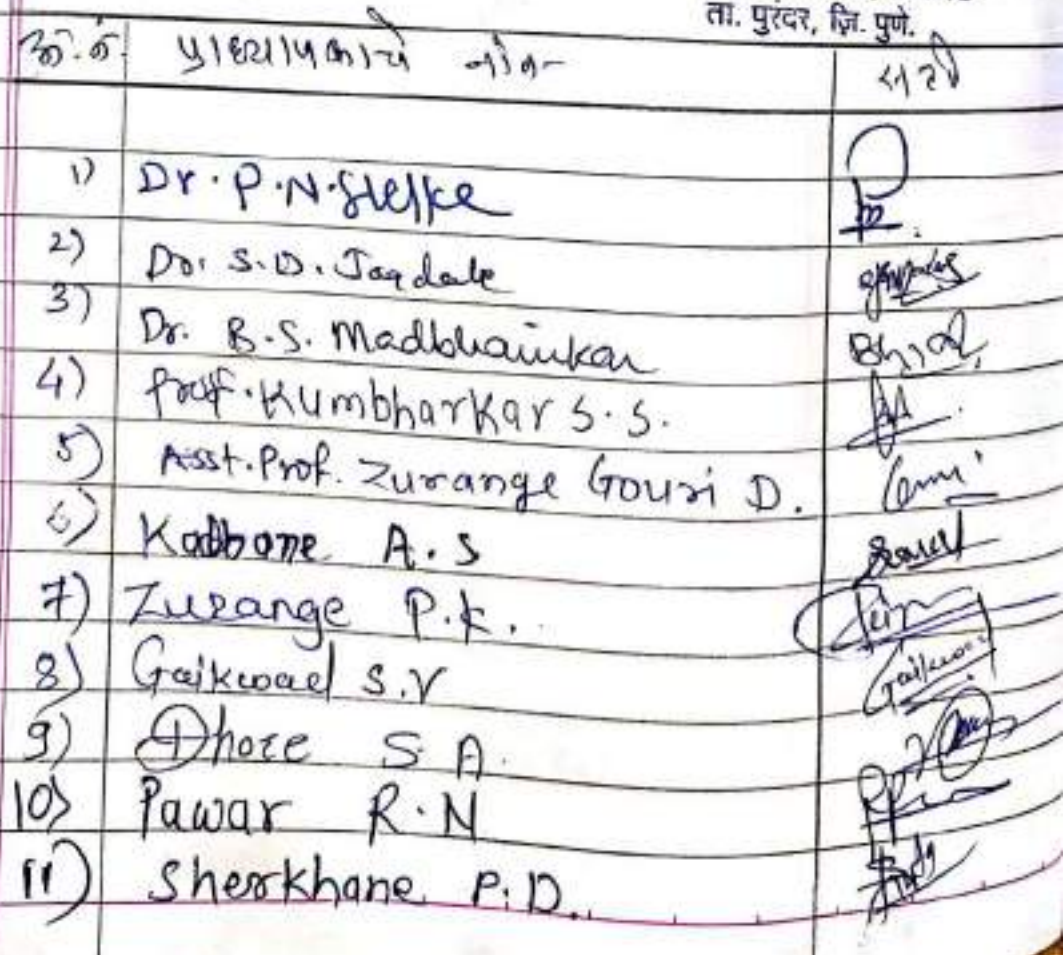 ता. पुरंदर, जि. पुणे.
अ.क्रं. प्राध्यापकाचे नांव सही
1) Dr. P.N. Shelke
2) Dr. S.D. Jagdale
3) Dr. B.S. Madbhavikar
4) Prof. Kumbharkar S.S.
5) Asst. Prof. Zurange Gouri D.
6) Kadbane A.S
7) Zurange P.K.
8) Gaikwad S.V Gaikwad
9) Dhore S.A.
10) Pawar R.N
11) Sherkhane P.D.